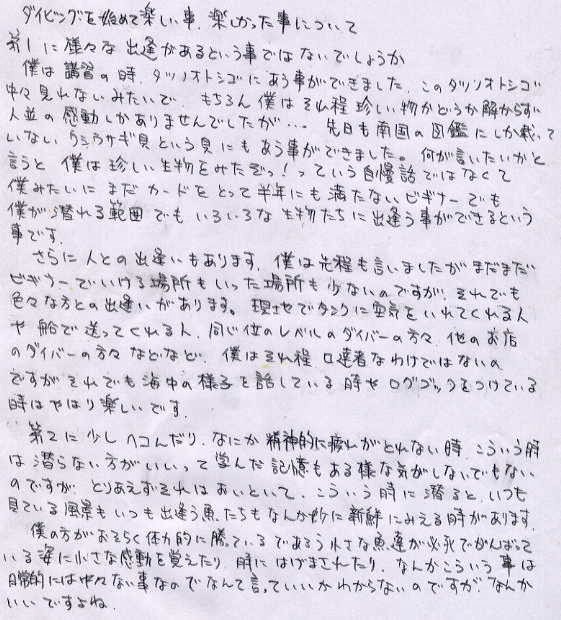 ダイビングを始めて楽しい事、楽しかった事について
第1に様々な出逢があるという事ではないでしょうか
僕は講習の時、タツノオトシゴにあう事ができました。このタツノオトシゴ
中々見れないみたいで、もちろん僕はそれ程珍しい物かどうか解からず
人並の感動しかありませんでしたが… 先日も南国の図鑑にしか載って
いないウミウサギ貝という貝にもあう事ができました。何が言いたいかと
言うと 僕は珍しい生物をみたぞっ!っていう自慢話ではなくて
僕みたいにまだカードをとって半年にも満たないビギナーでも
僕が潜れる範囲でもいろいろな生物たちに出逢う事ができるという
事です。
さらに人との出逢いもあります。僕は先程も言いましたがまだまだ
ビギナーでいける場所もいった場所も少ないのですが、それでも
色々な方との出逢いがあります。現地でタンクに空気をいれてくれる人
や 船で送ってくれる人、同じ位のレベルのダイバーの方々、他のお店
のダイバーの方々 などなど、僕はそれ程口達者なわけではないの
ですがそれでも海中の様子を話している時やログブックをつけている
時はやはり楽しいです。
第2に少しヘコんだり、なにか精神的に疲れがとれない時、こういう時
は潜らない方がいいって学んだ記憶もある様な気がしないでもない
のですが、とりあえずそれはおいといて、こういう時に潜ると、いつも
見ている風景もいつも出逢う魚たちもなんか妙に新鮮にみえる時があります。
僕の方がおそらく体力的に勝っているであろう小さな魚達が必死でがんばって
いる姿に小さな感動を覚えたり、時にはげまされたり、なんかこういう事は
日常的には中々ない事なのでなんて言っていいかわからないのですが、なんか
いいですよね。